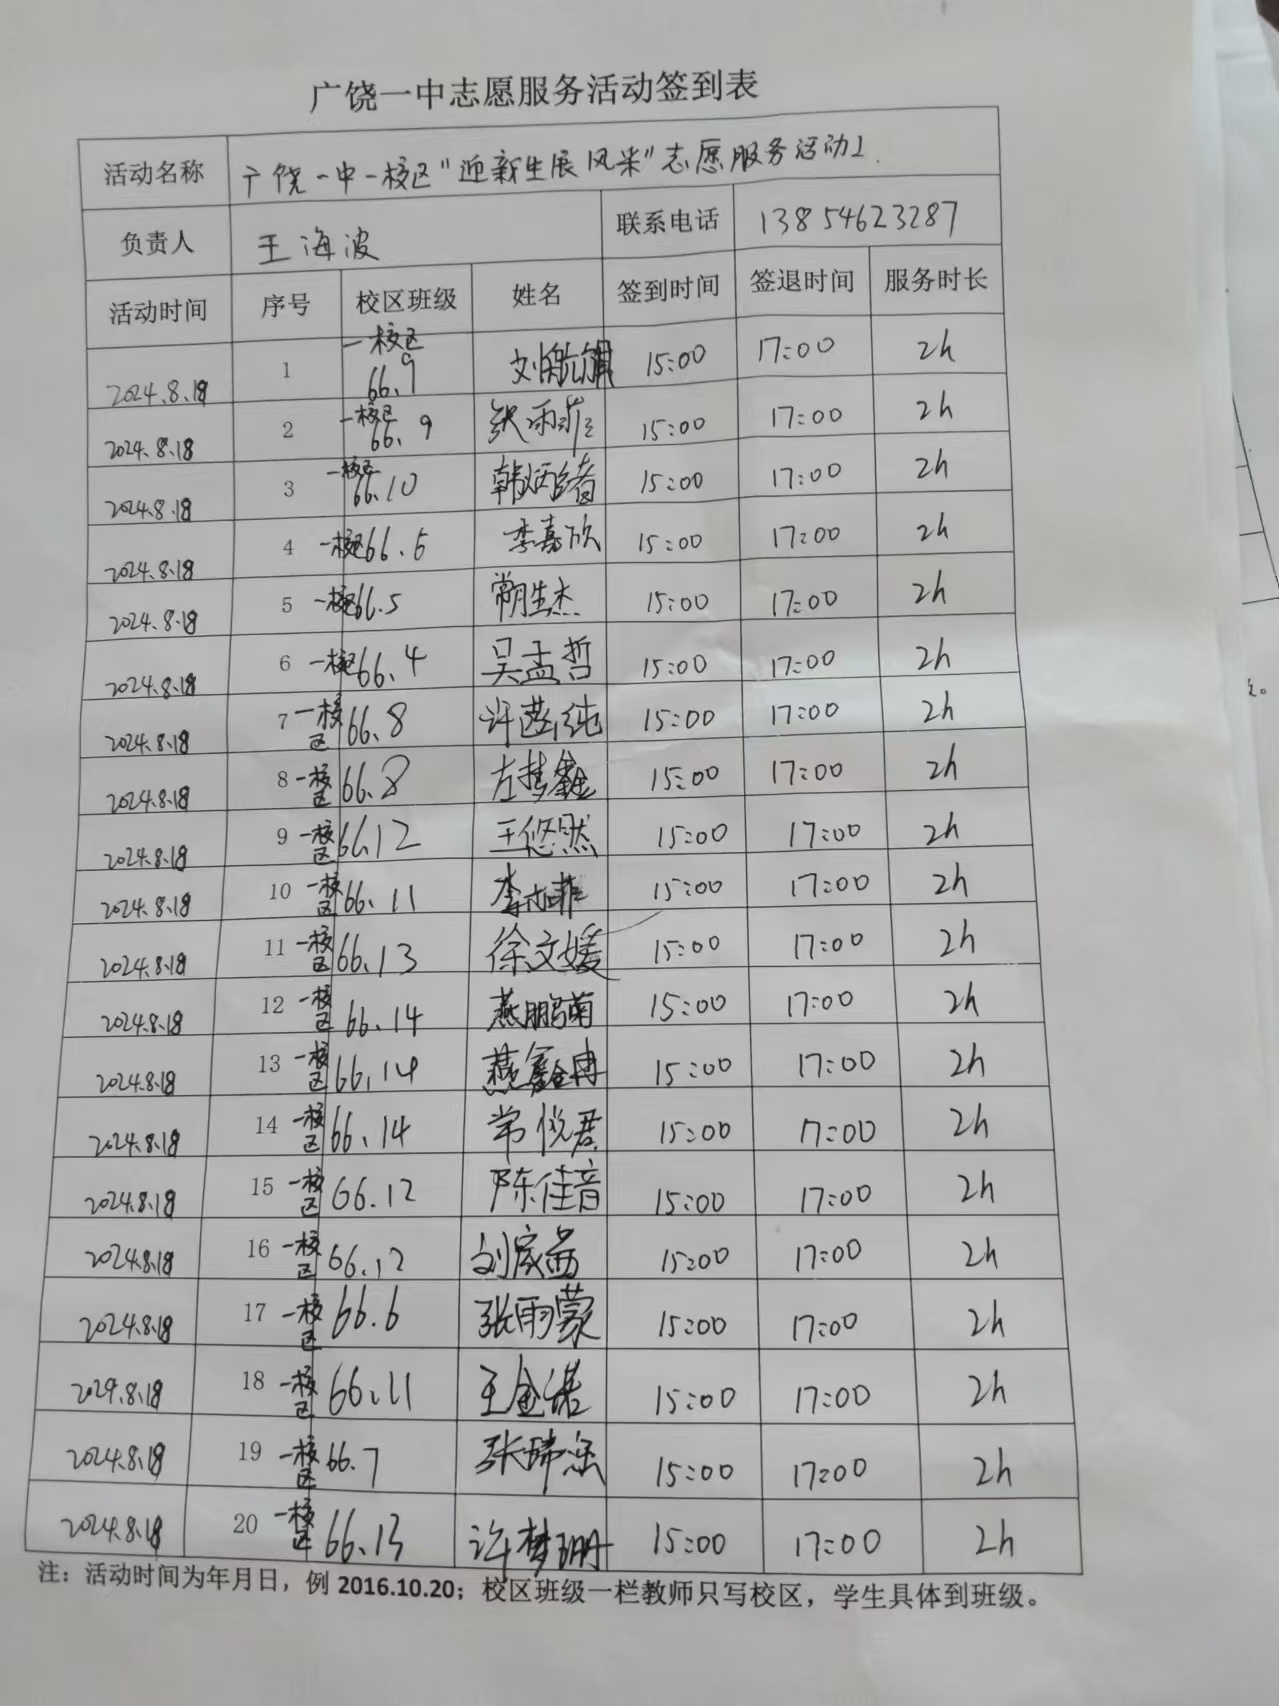 广饶一中志愿服务活动签到表
活动名称 广饶一中一校区"迎新生展风采"志愿服务活动
负责人 王海波 联系电话 13854623287
活动时间 序号 校区班级 姓名 签到时间 签退时间 服务时长
2024.8.18 1 一校区 66.9 刘航 15:00 17:00 2h
2024.8.18 2 一校区 66.9 张雨菲 15:00 17:00 2h
2024.8.18 3 一校区 66.10 韩炳绪 15:00 17:00 2h
2024.8.18 4 一校区 66.6 李嘉欣 15:00 17:00 2h
2024.8.18 5 一校区 66.5 生杰 15:00 17:00 2h
2024.8.18 6 一校区 66.4 吴孟哲 15:00 17:00 2h
2024.8.18 7 一校区 66.8 许茜纯 15:00 17:00 2h
2024.8.18 8 一校区 66.8 左梦鑫 15:00 17:00 2h
2024.8.18 9 一校区 66.12 王悠然 15:00 17:00 2h
2024.8.18 10 一校区 66.11 李 15:00 17:00 2h
2024.8.18 11 一校区 66.13 徐文媛 15:00 17:00 2h
2024.8.18 12 一校区 66.14 燕鹏菊 15:00 17:00 2h
2024.8.18 13 一校区 66.14 燕鑫冉 15:00 17:00 2h
2024.8.18 14 一校区 66.14 常悦君 15:00 17:00 2h
2024.8.18 15 一校区 66.12 陈佳音 15:00 17:00 2h
2024.8.18 16 一校区 66.12 刘家茜 15:00 17:00 2h
2024.8.18 17 一校区 66.6 张雨蒙 15:00 17:00 2h
2024.8.18 18 一校区 66.11 王金诺 15:00 17:00 2h
2024.8.18 19 一校区 66.7 张 15:00 17:00 2h
2024.8.18 20 一校区 66.13 许梦珊 15:00 17:00 2h
注：活动时间为年月日，例 2016.10.20；校区班级一栏教师只写校区，学生具体到班级。